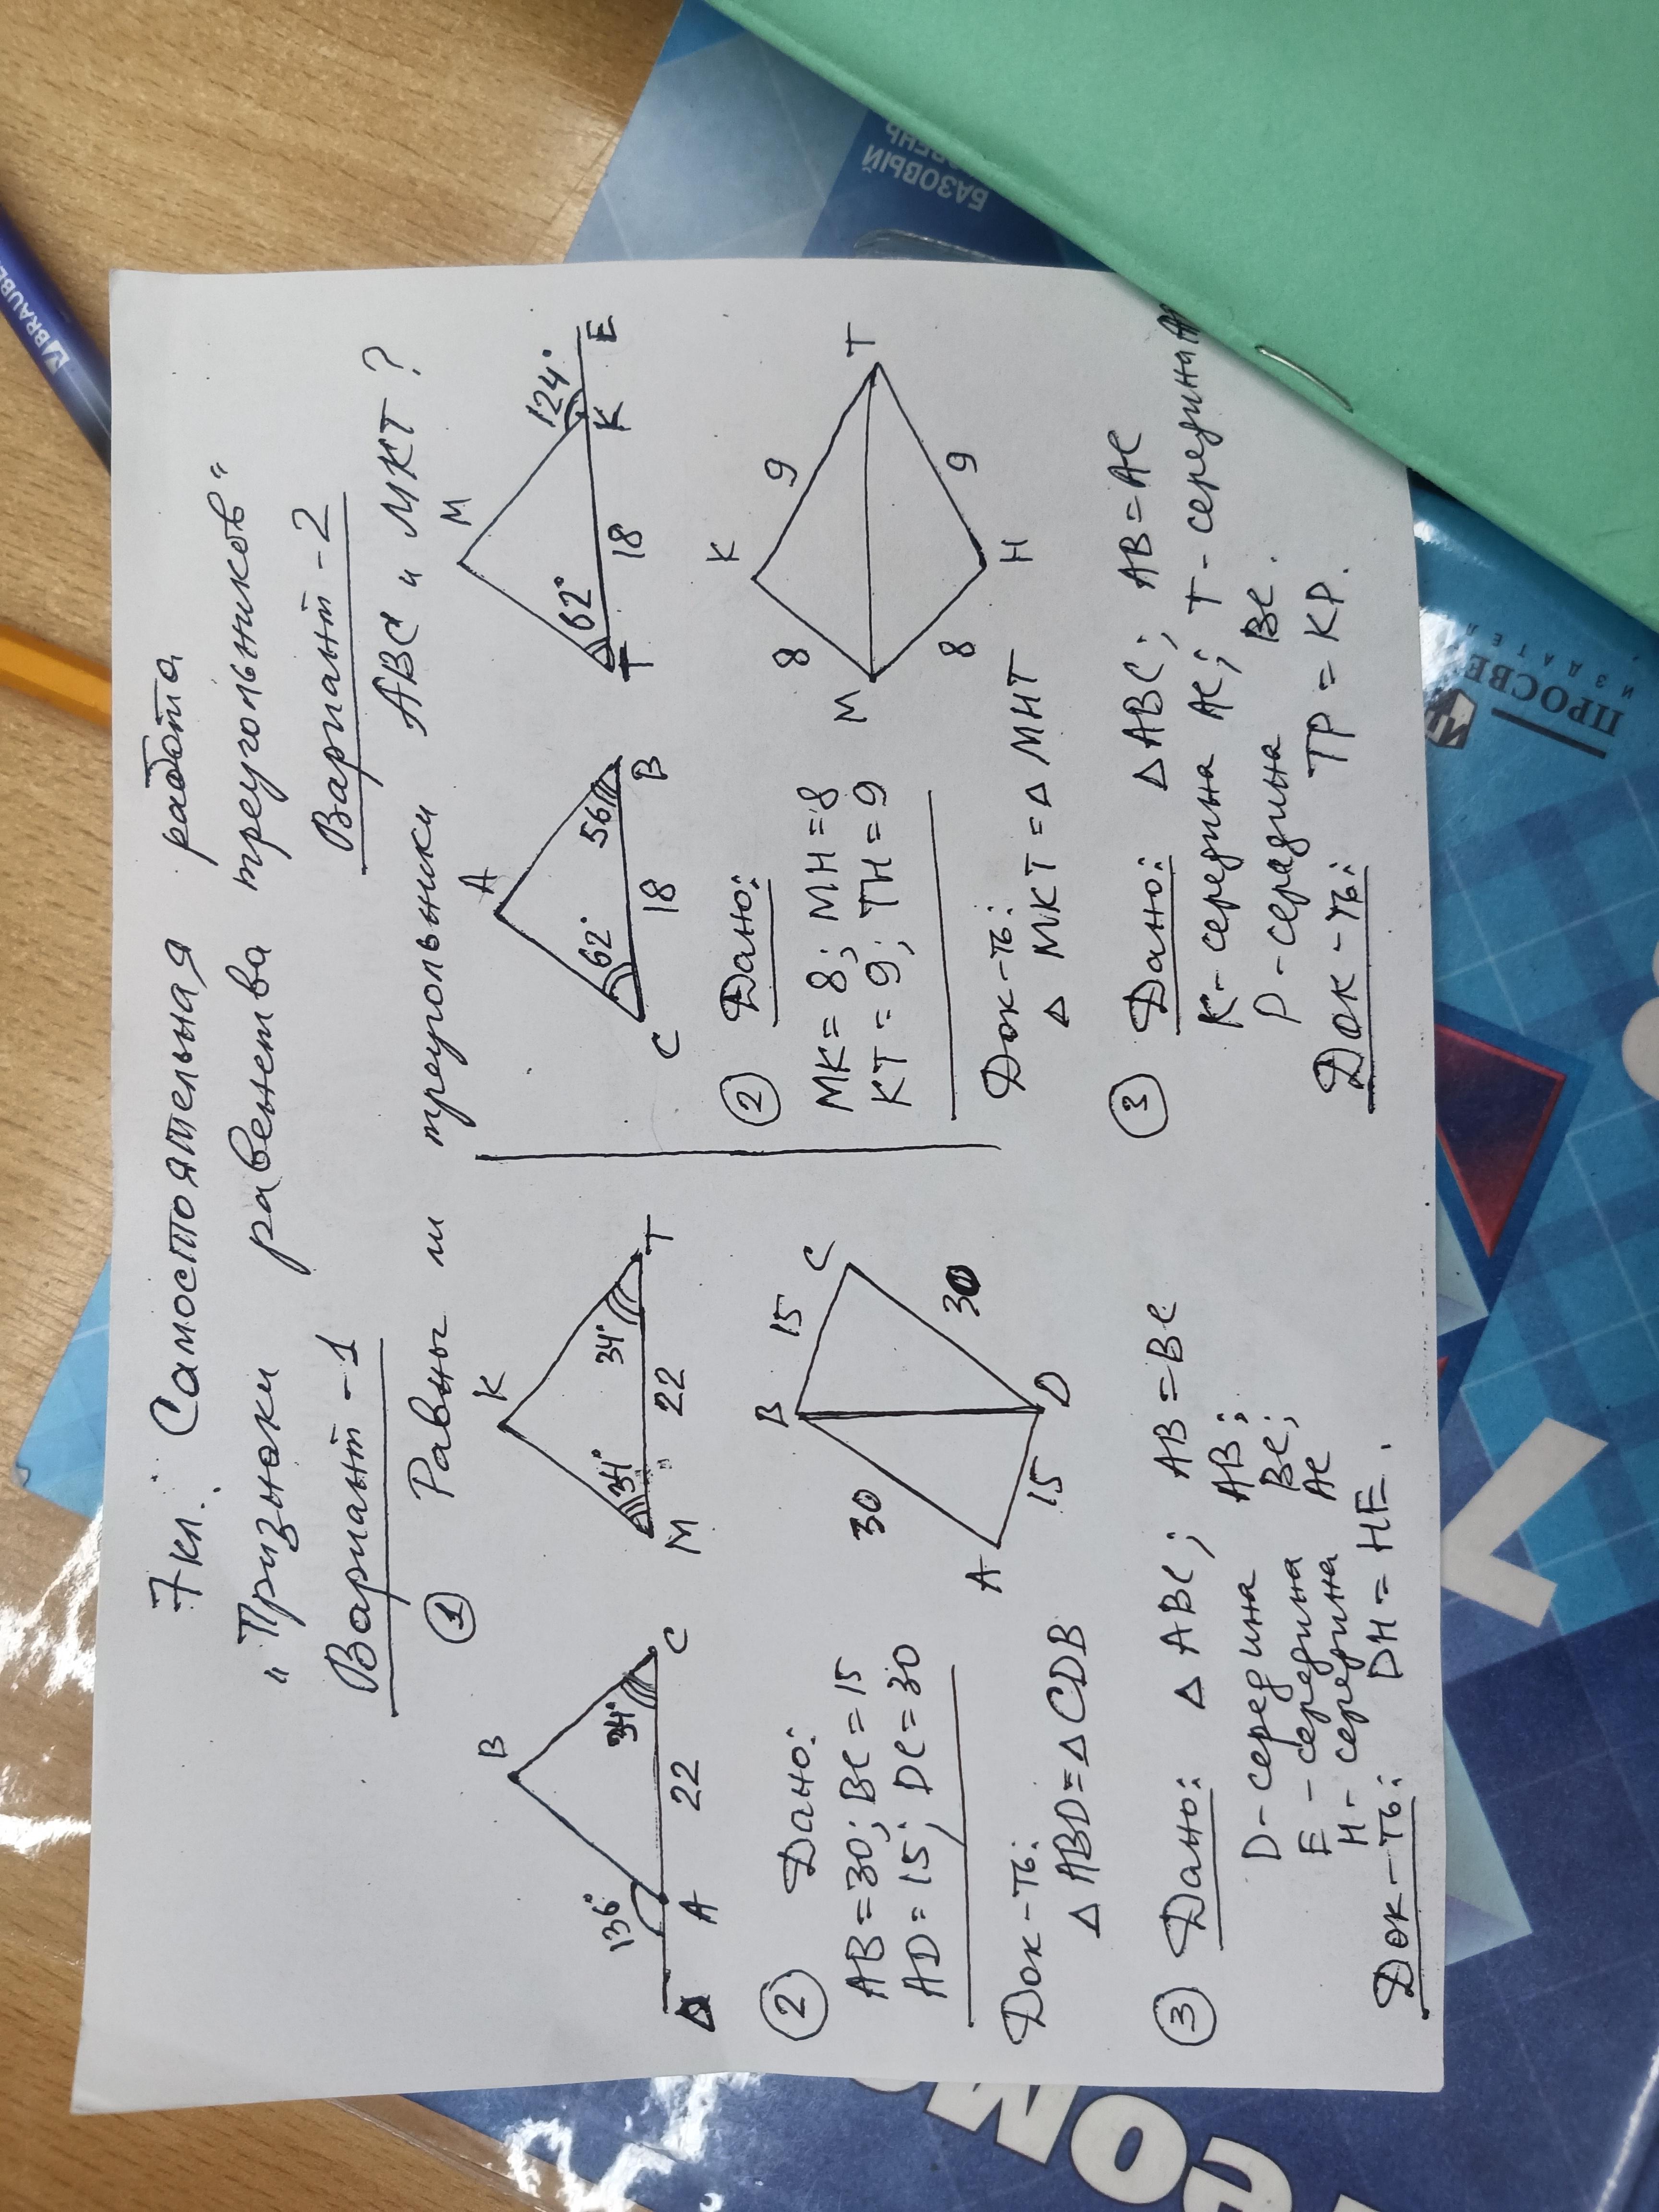 7 кл. Самостоятельная работа
"Признаки равенства треугольников"
Вариант - 1
Вариант - 2
① Равны ли треугольники АВС и МКТ?
B
136°
34°
D
A
22
C
K
34°
34°
M
22
T
A
62°
56
C
18
B
M
62°
124°
T
18
K
E
② Дано:
AB = 30; BC = 15
AD = 15; DC = 30
Док-ть:
Δ ABD = Δ CDB
B
15
C
30
30
A
15
D
② Дано:
MK = 8; MH = 8
KT = 9; TH = 9
Док-ть:
Δ MKT = Δ MHT
K
8
9
M
T
8
9
H
③ Дано: Δ ABC; AB = BC
D - середина AB;
F - середина BC;
H - середина AC
Док-ть: DH = HF.
③ Дано: Δ ABC; AB = AC
K - середина AC; T - середина
P - середина BC.
Док-ть: TP = KP.
BRAUBE
БАЗОВЫЙ
ПРОСВЕ